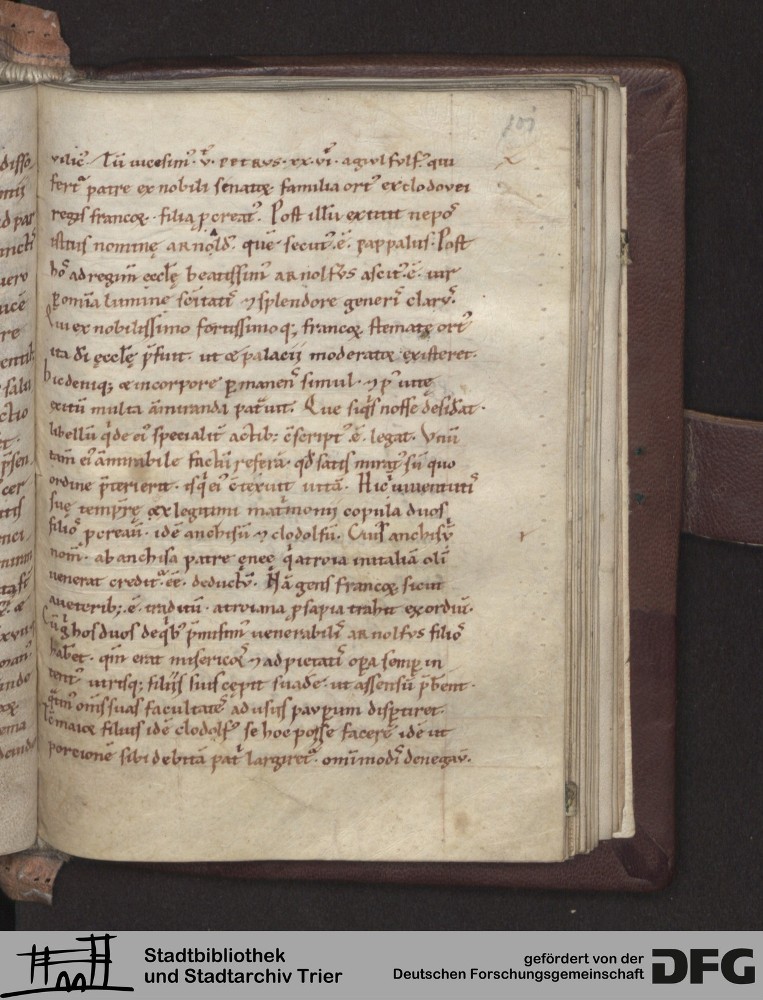 101
uilic̄. Tū uicesim᷒. v̊. PETRVS. xx. vi᷒. agiulfuſ᷒. qui
fert᷒ patre ex nobili senatoꝝ familia ort᷒ ex clodouei
regis francoꝝ. filia ꝓcreat᷒. Post illū extitit nepoˢ
istius nominę arnold᷒. quē secut᷒. ē. pappalus. Post
hoˢ ad regim̄ ecclę̄ beatissim᷒ arnolfus ascit᷒. ē. uir
ꝑ om̄ia lumine sc̄itatiˢ ⁊ splendore generiˢ clarꝰ.
Qui ex nobilissimo fortissimoq; francoꝝ stemate ort᷒
ita dī ęcclę̄ p̄fuit. ut & palacii moderator existeret.
hic deniq; & in corpore ꝑmanenˢ simul. ⁊ p᷒ uitę
exitū multa āmiranda pat᷒uit. Que siq̇s nosse desid̄at.
libellū q̇de ei᷒ specialit̄ actib; c̄script᷒. ē. legat. Vnū
tam̄ ei᷒ āmirabile factū referā. qd̄ satis mirat᷒ sū quo
ordine p̄terierit. isq̇ ei᷒ c̄texuit uitā. Hic iuuentutiˢ
suę tempr̄ę ex legitimi mat᷒monii copula duos
filioˢ ꝓcreauī. idē anchisū ⁊ clodolfū. Cuiˢ anchisę
nom̄. ab anchisa patre enee q̇ a troia in italiā olī
uenerat credit᷒. ēē. deductū. Hā gens francoꝝ sicut
a ueterib;. ē. traditū. a troiana ꝓsapia trahit exordiū.
Cū g̊ hos duos de qb᷒ p̄misim᷒ uenerabiliˢ arnolfus filioˢ
habet. qm̄ erat misericorˢ ⁊ ad pietatiˢ oꝑa semꝑ in
tent᷒ utrisq; filiis suis cępit suadē. ut assensū p̄bent.
q̇tin᷒ om̄s suas facultateˢ ad usus pauꝑum disꝑtiret.
Cē maior filius idē clodolf᷒ se hoc posse facerē idē ut
porcionē sibi debitā pat᷒ largiret᷒. om̄imodiˢ denegau̅.
Stadtbibliothek
und Stadtarchiv Trier
gefördert von der
Deutschen Forschungsgemeinschaft
DFG